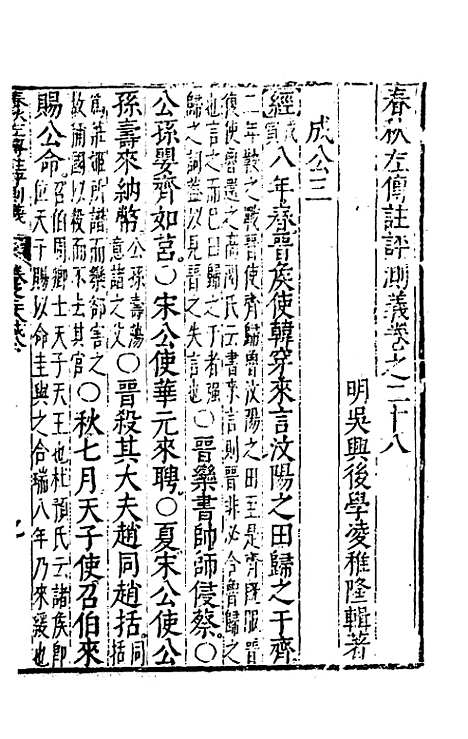 春秋左傳註評測義卷之二十八
明吳興後學凌稚隆輯著
成公三
經
八年春晉侯使韓穿來言汶陽之田歸之于齊
二年鞍之戰晉使齊歸魯汶陽之田至是齊服晉
復使魯還之高閌氏云書來言則晉非必令魯歸之
也言之而已曰歸之于者强
歸之詞蓋以見晉之失言也
○晉欒書帥師侵蔡○
公孫嬰齊如莒○宋公使華元來聘○夏宋公使公
孫壽來納幣
公孫壽蕩
意諸之父
○晉殺其大夫趙同趙括
同括
爲莊姬所譖而欒郤害之
故稱國以殺而不去其官
○秋七月天子使召伯來
賜公命
召伯周卿士天子天王也杜預氏云諸侯即
位天子賜以命圭與之合瑞八年乃來緩也